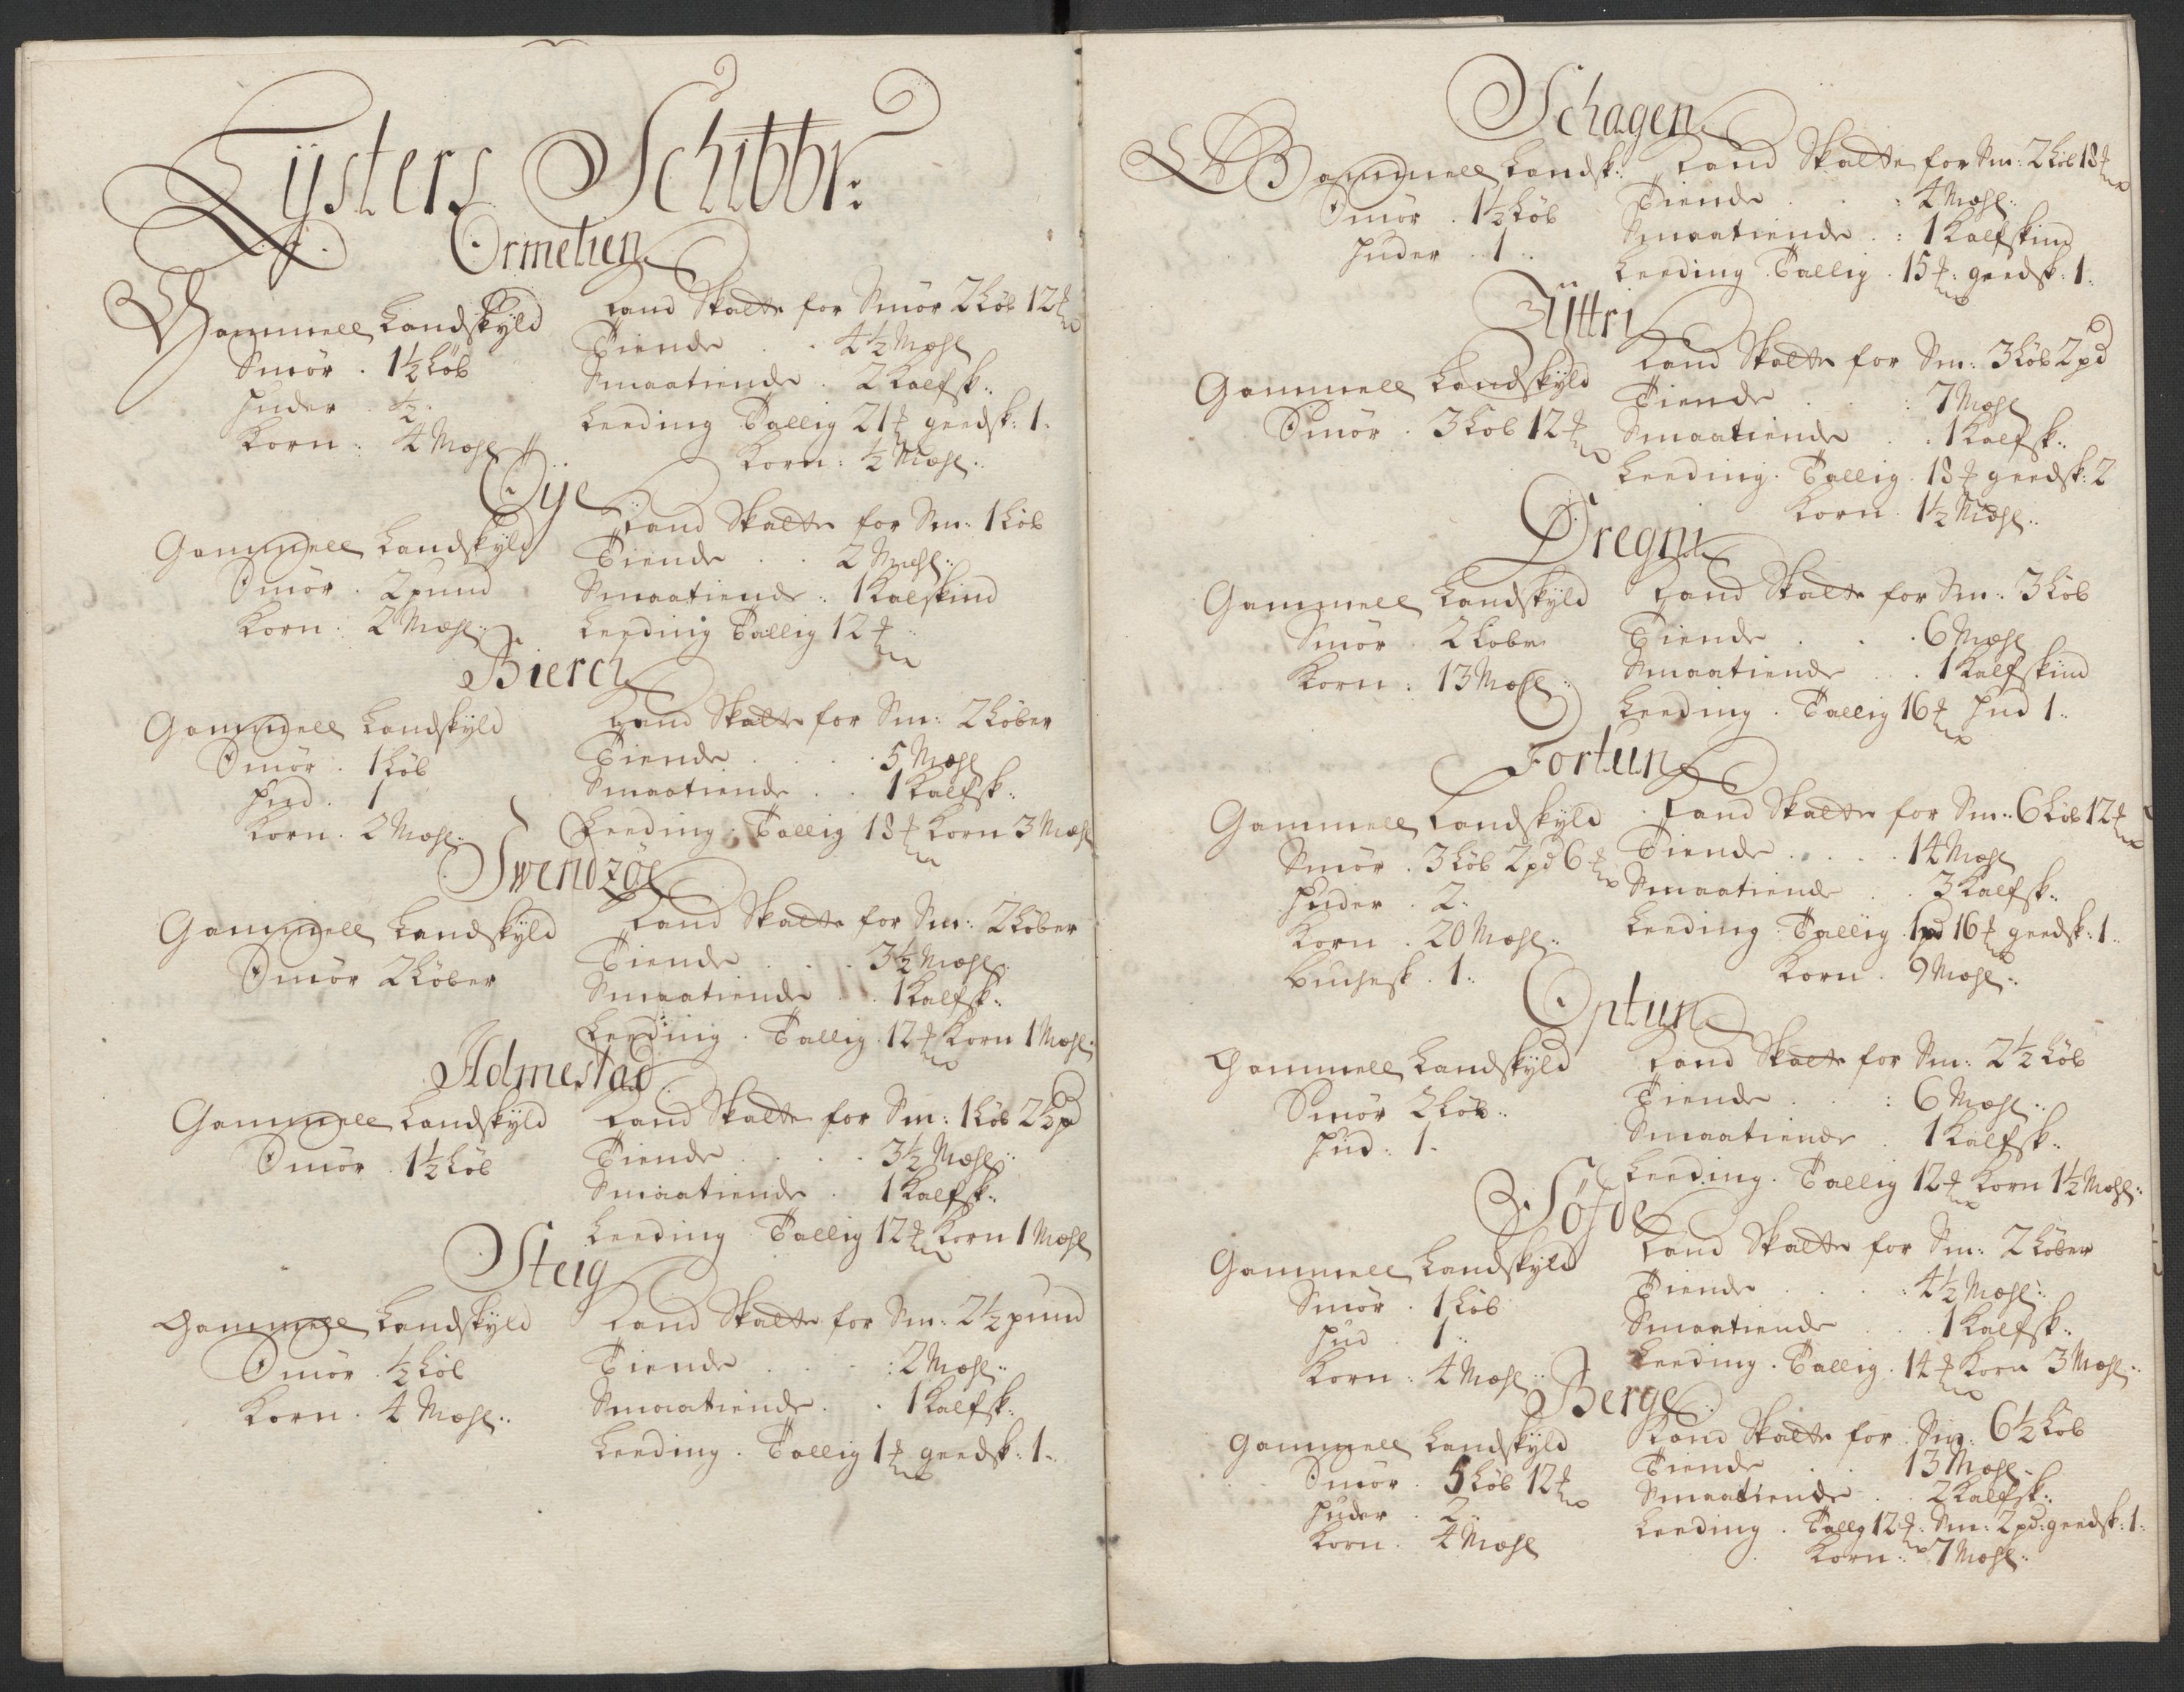 Lÿsters Schibbr:
Ormelien
Gammell Landskyld
Smör . 1½ Løb
Huder . ½.
Korn : 4 Mæhl
Land Skatte for Smör 2 Løb 12 ℔
Tiende . . 4½ Mæhl
Smaatiende . 2 Kalfsk:
Leeding Tallig 21 ℔ geedsk: 1.
Korn : ½ Mæhl:
Öye
Gammell Landskyld
Smör . 2 pund
Korn . 2 Mæhl:
Land Skatte for Sm: 1 Løb
Tiende . . 2 Mæhl:
Smaatiende : 1 Kalfskind
Leeding Tallig 12 ℔
Bierch
Gammell Landskyld
Smör . 1 Løb
Hud . 1
Korn . 2 Mæhl:
Land Skatte for Sm: 2 Løber
Tiende . . . 5 Mæhl
Smaatiende . . 1 Kalfsk:
Leeding . Tallig 18 ℔ Korn 3 Mæhl
Swendzöe
Gammell Landskyld
Smör 2 Løber
Land Skatte for Sm: 2 Løber
Tiende . . . 3½ Mæhl:
Smaatiende . . 1 Kalfsk:
Leeding . Tallig . 12 ℔ Korn 1 Mæhl:
Admestad
Gammell Landskyld
Smör . 1½ Løb
Land Skatte for Sm: 1 Løb 2½ pd
Tiende . . . 3½ Mæhl:
Smaatiende . 1 Kalfsk:
Leeding Tallig 12 ℔ Korn 1 Mæhl
Steig
Gammell Landskyld
Smör . ½ Løb
Korn . 4 Mæhl:
Land Skatte for Sm: 2½ pund
Tiende . . : 2 Mæhl:
Smaatiende . . 1 Kalfsk:
Leeding . Tallig 1 ℔ geedsk: 1.
Schagen
Gammell Landsk:
Smör . 1½ Løb
Huder . 1 .
Land Skatte for Sm: 2 Løb 18 ℔
Tiende . . : 4 Mæhl:
Smaatiende . : 1 Kalfskind
Leeding Tallig . 15 ℔: geedsk: 1.
Üttri
Gammell Landskyld
Smör . 3 Løb 12 ℔
Land Skatte for Sm: 3 Løb 2 pd
Tiende . . : 7 Mæhl
Smaatiende . . 1 Kalfsk:
Leeding . Tallig . 18 ℔ geedsk: 2
Korn . 1½ Mæhl:
Dregni
Gammell Landskyld
Smör . 2 Løber
Korn : 13 Mæhl:
Land Skatte for Sm: 3 Løb
Tiende . . . 6 Mæhl
Smaatiende . . 1 Kalfskind
Leeding . Tallig 16 ℔ Hud 1.
Fortun
Gammell Landskyld
Smör . 3 Løb 2 pd 6 ℔
Huder . 2.
Korn . 20 Mæhl:
Buchesk . 1.
Land Skatte for Sm: 6 Løb 12 ℔
Tiende . . . 14 Mæhl
Smaatiende . . 3 Kalfsk:
Leeding . Tallig . 1 pd 16 ℔ geedsk: 1.
Korn . 9 Mæhl:
Optun
Gammell Landskyld
Smör 2 Løb.
Hud : 1.
Land Skatte for Sm: 2½ Løb
Tiende . . : 6 Mæhl:
Smaatiende . 1 Kalfsk:
Leeding . Tallig 12 ℔ Korn 1½ Mæhl:
Söfde
Gammell Landskyld
Smör . 1 Løb
Hud . 1.
Korn : 4 Mæhl:
Land Skatte for Sm: 2 Løber
Tiende . . : 4½ Mæhl:
Smaatiende . . 1 Kalfsk:
Leeding . Tallig . 14 ℔ Korn 3 Mæhl:
Berge
Gammell Landskyld
Smör . 5 Løb 12 ℔
Huder . 2.
Korn . 4 Mæhl
Land Skatte for Sm: 6½ Løb
Tiende . . 13 Mæhl.
Smaatiende . . 2 Kalfsk:
Leeding . Tallg 12 ℔: Sm: 2 pd: geedsk: 1.
Korn : 7 Mæhl: